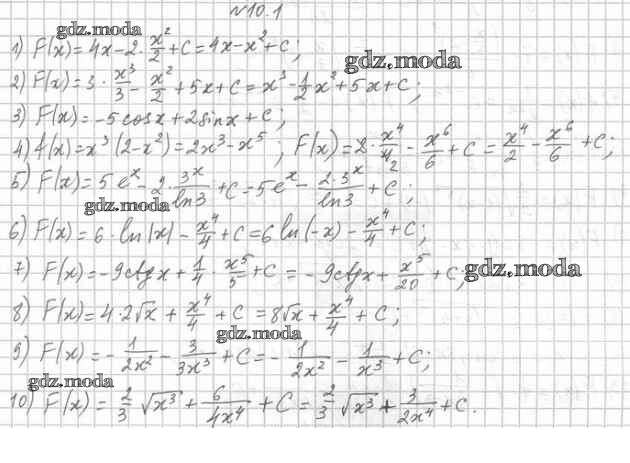 №10.1
gdz.moda
1) F(x) = 4x - 2 · x²/2 + C = 4x - x² + C;
gdz.moda
2) F(x) = 3 · x³/3 - x²/2 + 5x + C = x³ - 1/2 x² + 5x + C;
3) F(x) = -5cosx + 2sinx + C;
4) f(x) = x³(2 - x²) = 2x³ - x⁵; F(x) = 2 · x⁴/4₂ - x⁶/6 + C = x⁴/2 - x⁶/6 + C;
5) F(x) = 5eˣ - 2 · 3ˣ/ln3 + C = 5eˣ - 2·3ˣ/ln3 + C;
gdz.moda
6) F(x) = 6 · ln|x| - x⁴/4 + C = 6 ln(-x) - x⁴/4 + C;
7) F(x) = -9ctgx + 1/4 · x⁵/5 + C = -9ctgx + x⁵/20 + C;
gdz.moda
8) F(x) = 4 · 2√x + x⁴/4 + C = 8√x + x⁴/4 + C;
gdz.moda
9) F(x) = - 1/2x² - 3/3x³ + C = - 1/2x² - 1/x³ + C;
gdz.moda
10) F(x) = 2/3 √x³ + 6/4x⁴ + C = 2/3 √x³ + 3/2x⁴ + C.